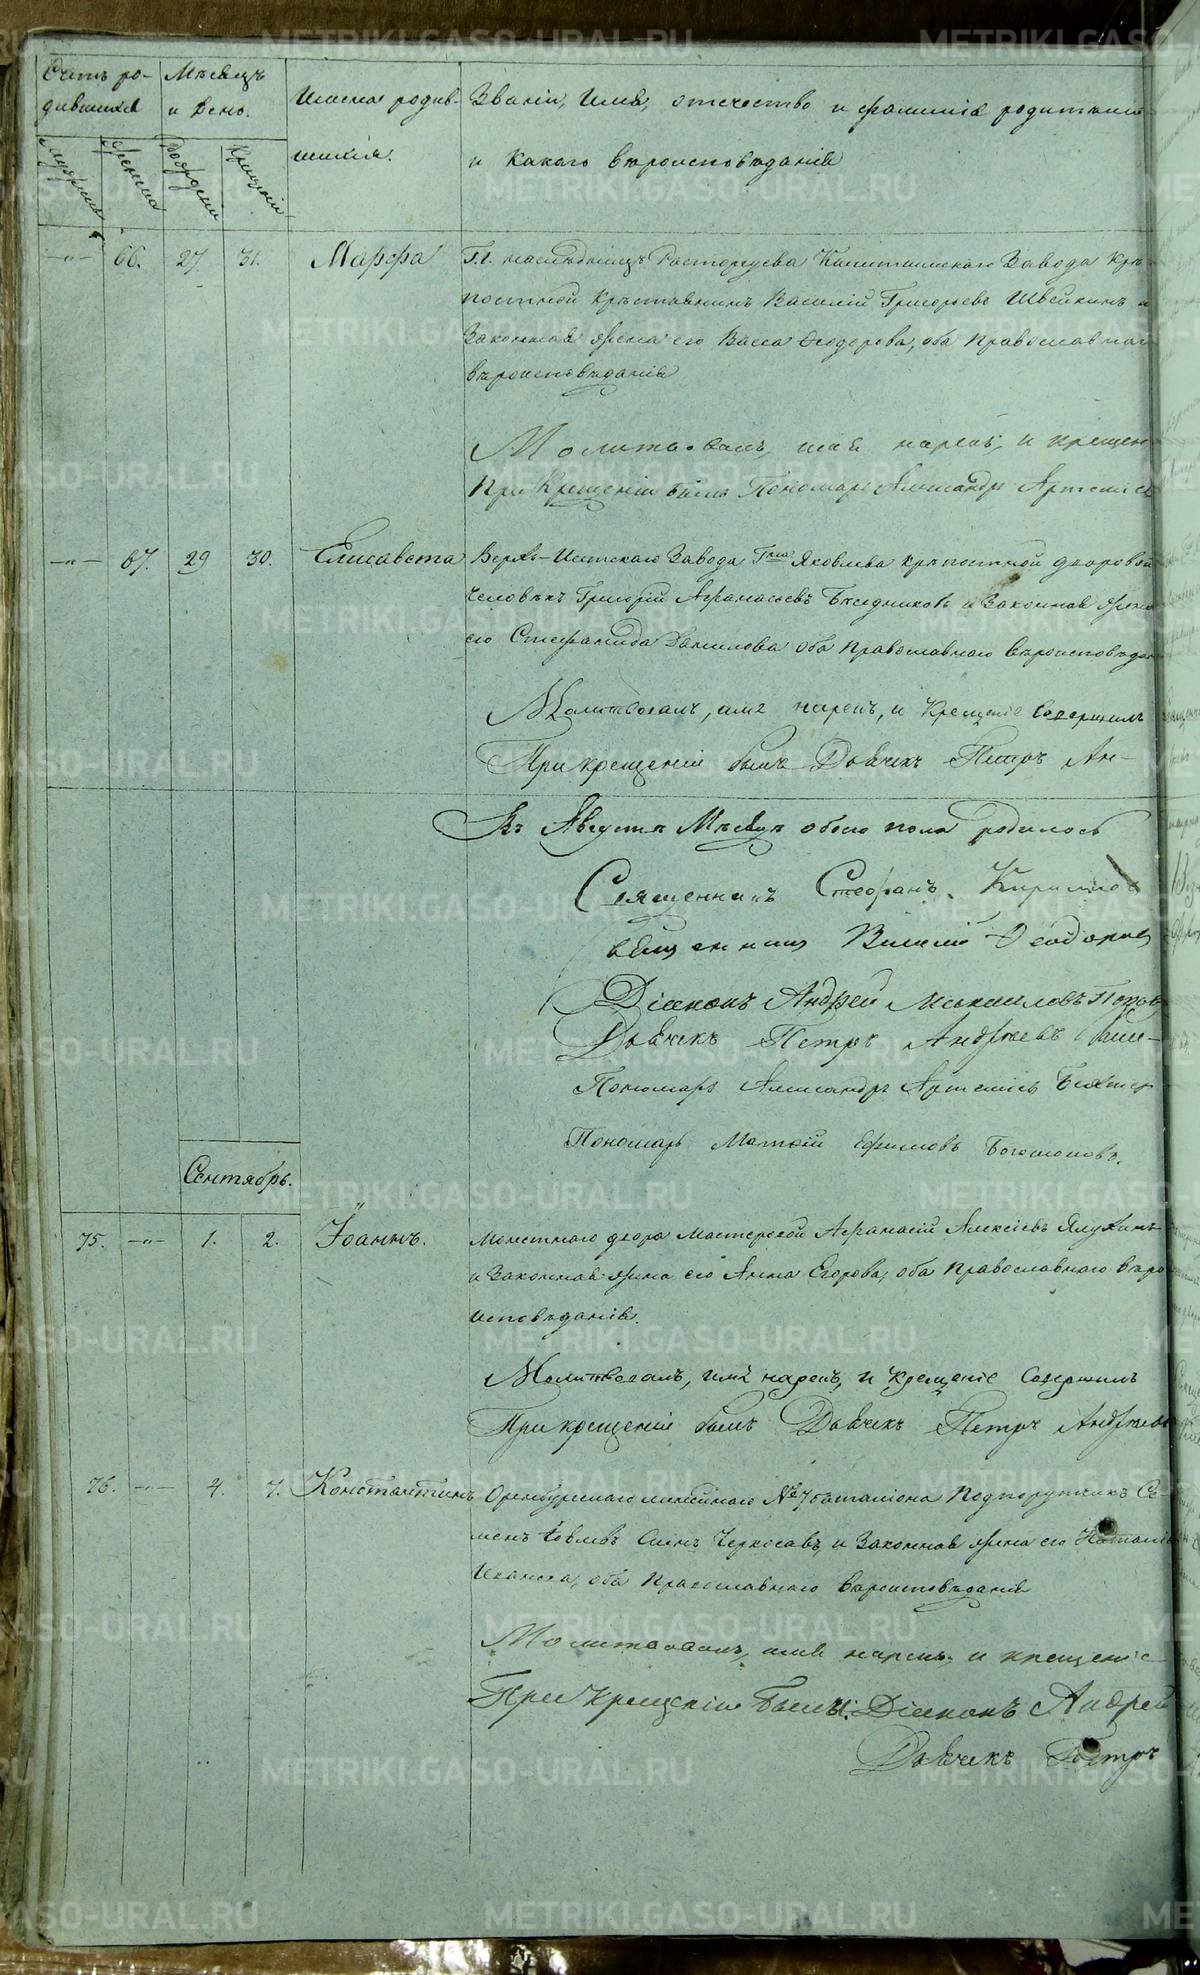 Счетъ ро-
дившихся
Мѣсяцъ
и день.
Имена родив-
шихся.
Званіе, имя, отечество и фамилія родителей
и какого вѣроисповѣданія
Мужеска
Женска
Рожденія
Крещенія
—„— 66. 27. 31. Марфа
Г.г. наслѣдницъ Расторгуева Каштымскаго Завода крѣ-
постной крестьянинъ Василій Григорьевъ Швейкинъ и
Законная жена его Васса Ѳеодорова, оба Православнаго
вѣроисповѣданія
Молитвовалъ, имя нарекъ, и крещен
При Крещеніи былъ Пономарь Александръ Артемьев
—„— 67. 29 30. Елисавета
Верхъ-Исетскаго Завода Г-на Яковлева крѣпостной дворовой
человѣкъ Григорій Афанасьевъ Бѣсѣдниковъ и Законная жена
его Стефанида Данилова оба Православнаго вѣроисповѣдан
Молитвовалъ, имя нарекъ, и Крещеніе Совершилъ
При крещеніи былъ Дьячекъ Петръ Ан-
Въ Августѣ Мѣсяцѣ обоего пола родилось
Священникъ Стефанъ Кирилловъ
Священникъ Василій Ѳеодоров
Діаконъ Андрей Михаиловъ Попов
Дьячекъ Петръ Андреевъ
Пономарь Александръ Артемьевъ
Пономарь Матвѣй Ефимовъ Богомоловъ.
Сентябрь.
75. —„— 1. 2. Іоаннъ.
Монетнаго двора Мастерской Афанасій Алексѣевъ Ялухинъ
и Законная жена его Анна Егорова, оба Православнаго вѣро
исповѣданія.
Молитвовалъ, имя нарекъ, и крещеніе Совершилъ
При крещеніи былъ Дьячекъ Петръ Андреевъ
76. —„— 4. 7. Константинъ
Оренбургскаго линейнаго №7 баталіона Подпорутчикъ Се-
менъ Іовлевъ Сынъ Черкасовъ, и Законная жена его Наталія
Иванова, оба Православнаго вѣроисповѣданія
Молитвовалъ, имя нарекъ, и крещеніе
При крещеніи былъ: Діаконъ Андрей
Дьячекъ Петръ
METRIKI.GASO-URAL.RU